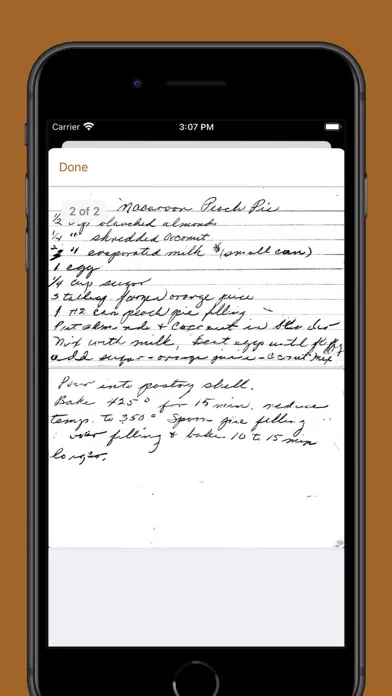 Carrier 3:07 PM
Done
2 of 2
Macaroon Peach Pie
1/2 cup blanched almonds
1/4 " " shredded coconut
" evaporated milk (small can)
1 egg
1/4 cup sugar
3 tablesp. orange juice
1 #2 can peach pie filling
Put almonds & coconut in
Mix with milk, beat eggs until
add sugar - orange juice -
Pour into pastry shell.
Bake 425° for 15 min. reduce
temp. to 350° Spoon pie filling
over filling & bake 10 to 15 min
longer.